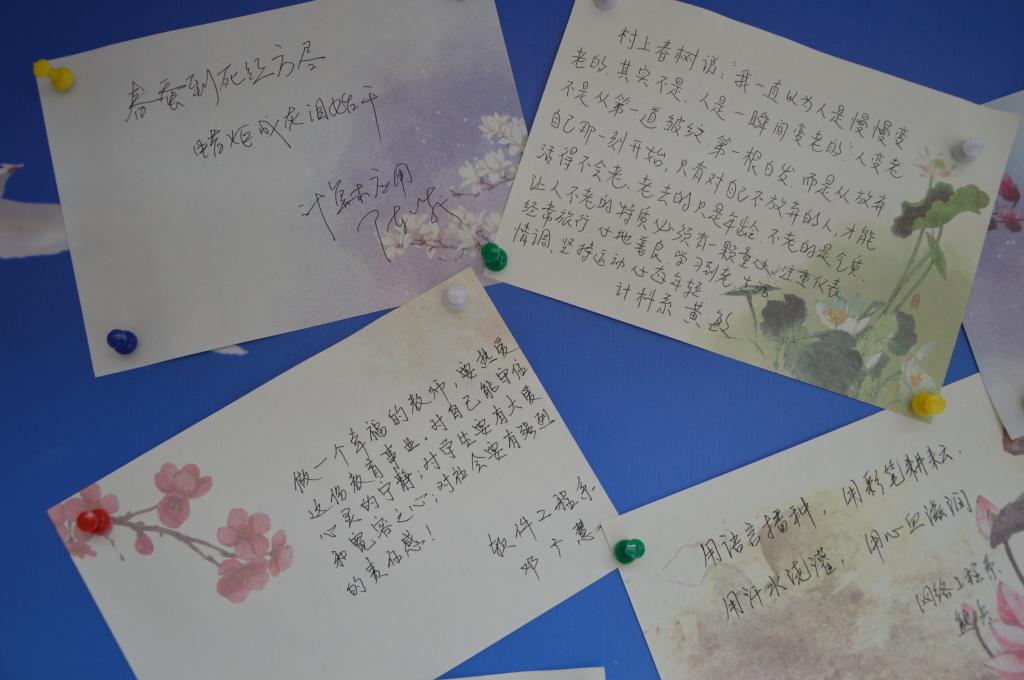 春蚕到死丝方尽
蜡炬成灰泪始干
计算机应用
村上春树说:“我一直以为人是慢慢变
老的,其实不是,人是一瞬间变老的”.人变老
不是从第一道皱纹.第一根白发.而是从放弃
自己那一刻开始,只有对自己不放弃的人,才能
活得不会老,老去的只是年龄.不老的是气质
让人不老的特质必须有一颗童心,注重仪表
经常旅行.心地善良.学习到老.生活
情调.坚持运动.心态年轻.
计科系 黄敏
做一个幸福的教师,要热爱
这份教育事业。对自己能守住
心灵的宁静;对学生要有大爱
和宽容之心;对社会要有强烈
的责任感!
软件工程系.
邓广慧
用语言播种,用彩笔耕耘,
用汗水浇灌,用心血滋润
网络工程系